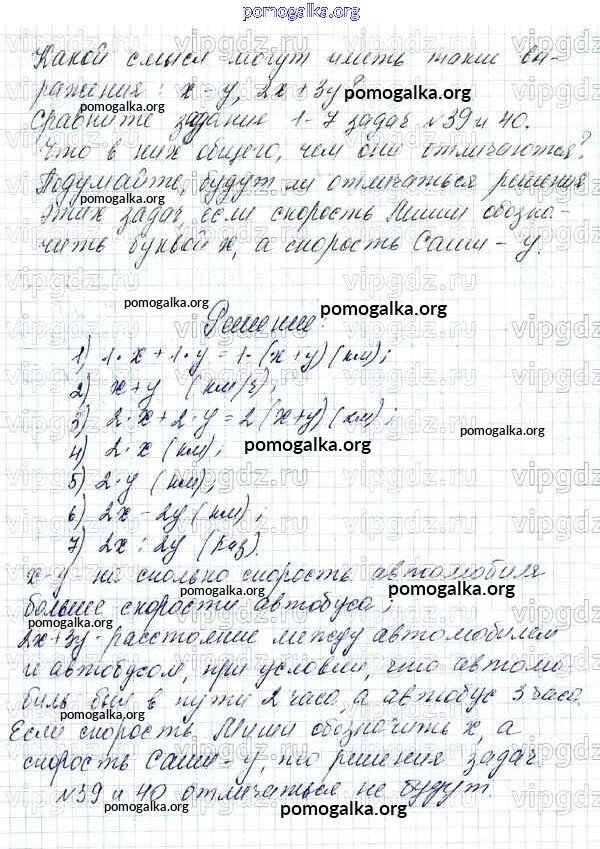 pomogalka.org
Какой смысл могут иметь такие вы-
ражения: x - y, 2x + 3y?
Сравните задания 1-7 задач №39 и 40.
Что в них общего, чем они отличаются?
Подумайте, будут ли отличаться решения
этих задач, если скорость Миши обозна-
чить буквой x, а скорость Саши - y.
Решение:
1) 1·x + 1·y = 1·(x+y) (км);
2) x+y (км/ч);
3) 2·x + 2·y = 2(x+y) (км);
4) 2·x (км);
5) 2·y (км);
6) 2x - 2y (км);
7) 2x : 2y (раз).
x-y на сколько скорость автомобиля
больше скорости автобуса;
2x+3y - расстояние между автомобилем
и автобусом, при условии, что автомо-
биль был в пути 2 часа, а автобус 3 часа.
Если скорость Миши обозначить x, а
скорость Саши - y, то решения задач
№39 и 40 отличаться не будут.
pomogalka.org